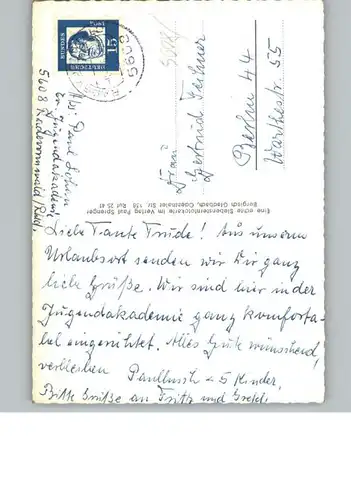 DEUTSCHE
15
5608
Abs: Paul
ev. Jugendakademie
5608 Radevormwald/Rhld.
Frau
Gertrud
Berlin 44
Warthestr. 55
Eine echte Siebensternkarte im Verlag Paul Sprenger
Bergisch Gladbach, Odenthaler Str. 159 Ruf 25 41
Liebe Tante Trude! Aus unserem
Urlaubsort senden wir Dir ganz
liebe Grüße. Wir sind hier in der
Jugendakademie ganz komforta-
bel eingerichtet. Alles Gute wünschend,
verbleiben 5 Kinder,
Bitte Grüße an Fritz und Gretel.